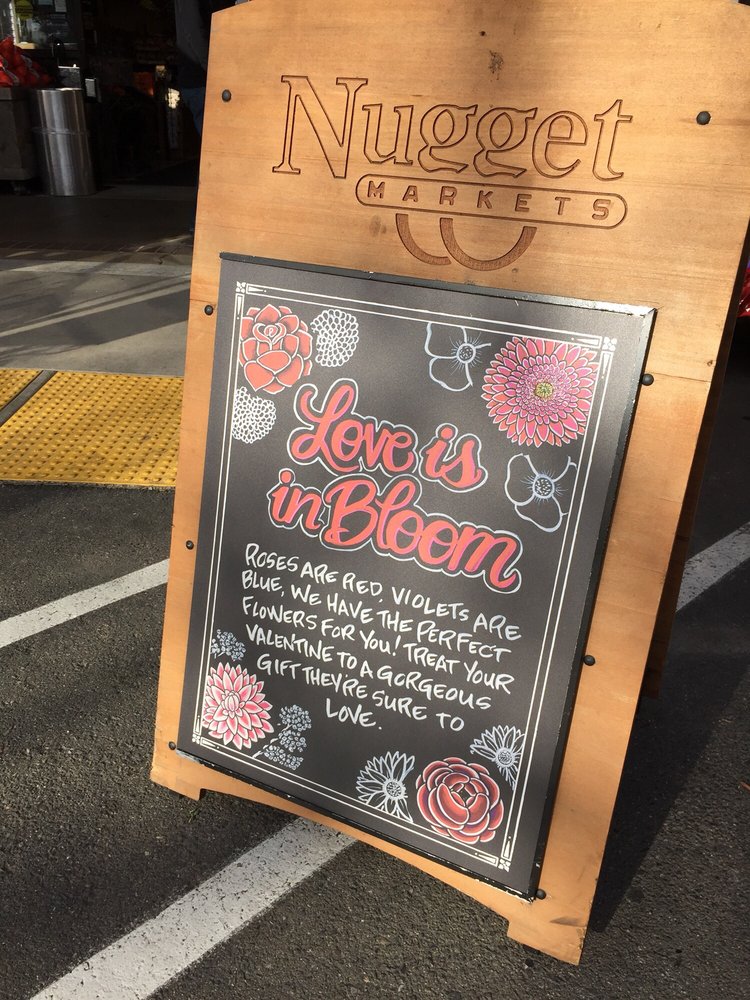 Nugget
MARKETS
Love is
in Bloom
ROSES ARE RED, VIOLETS ARE
BLUE, WE HAVE THE PERFECT
FLOWERS FOR YOU! TREAT YOUR
VALENTINE TO A GORGEOUS
GIFT THEY'RE SURE TO
LOVE.